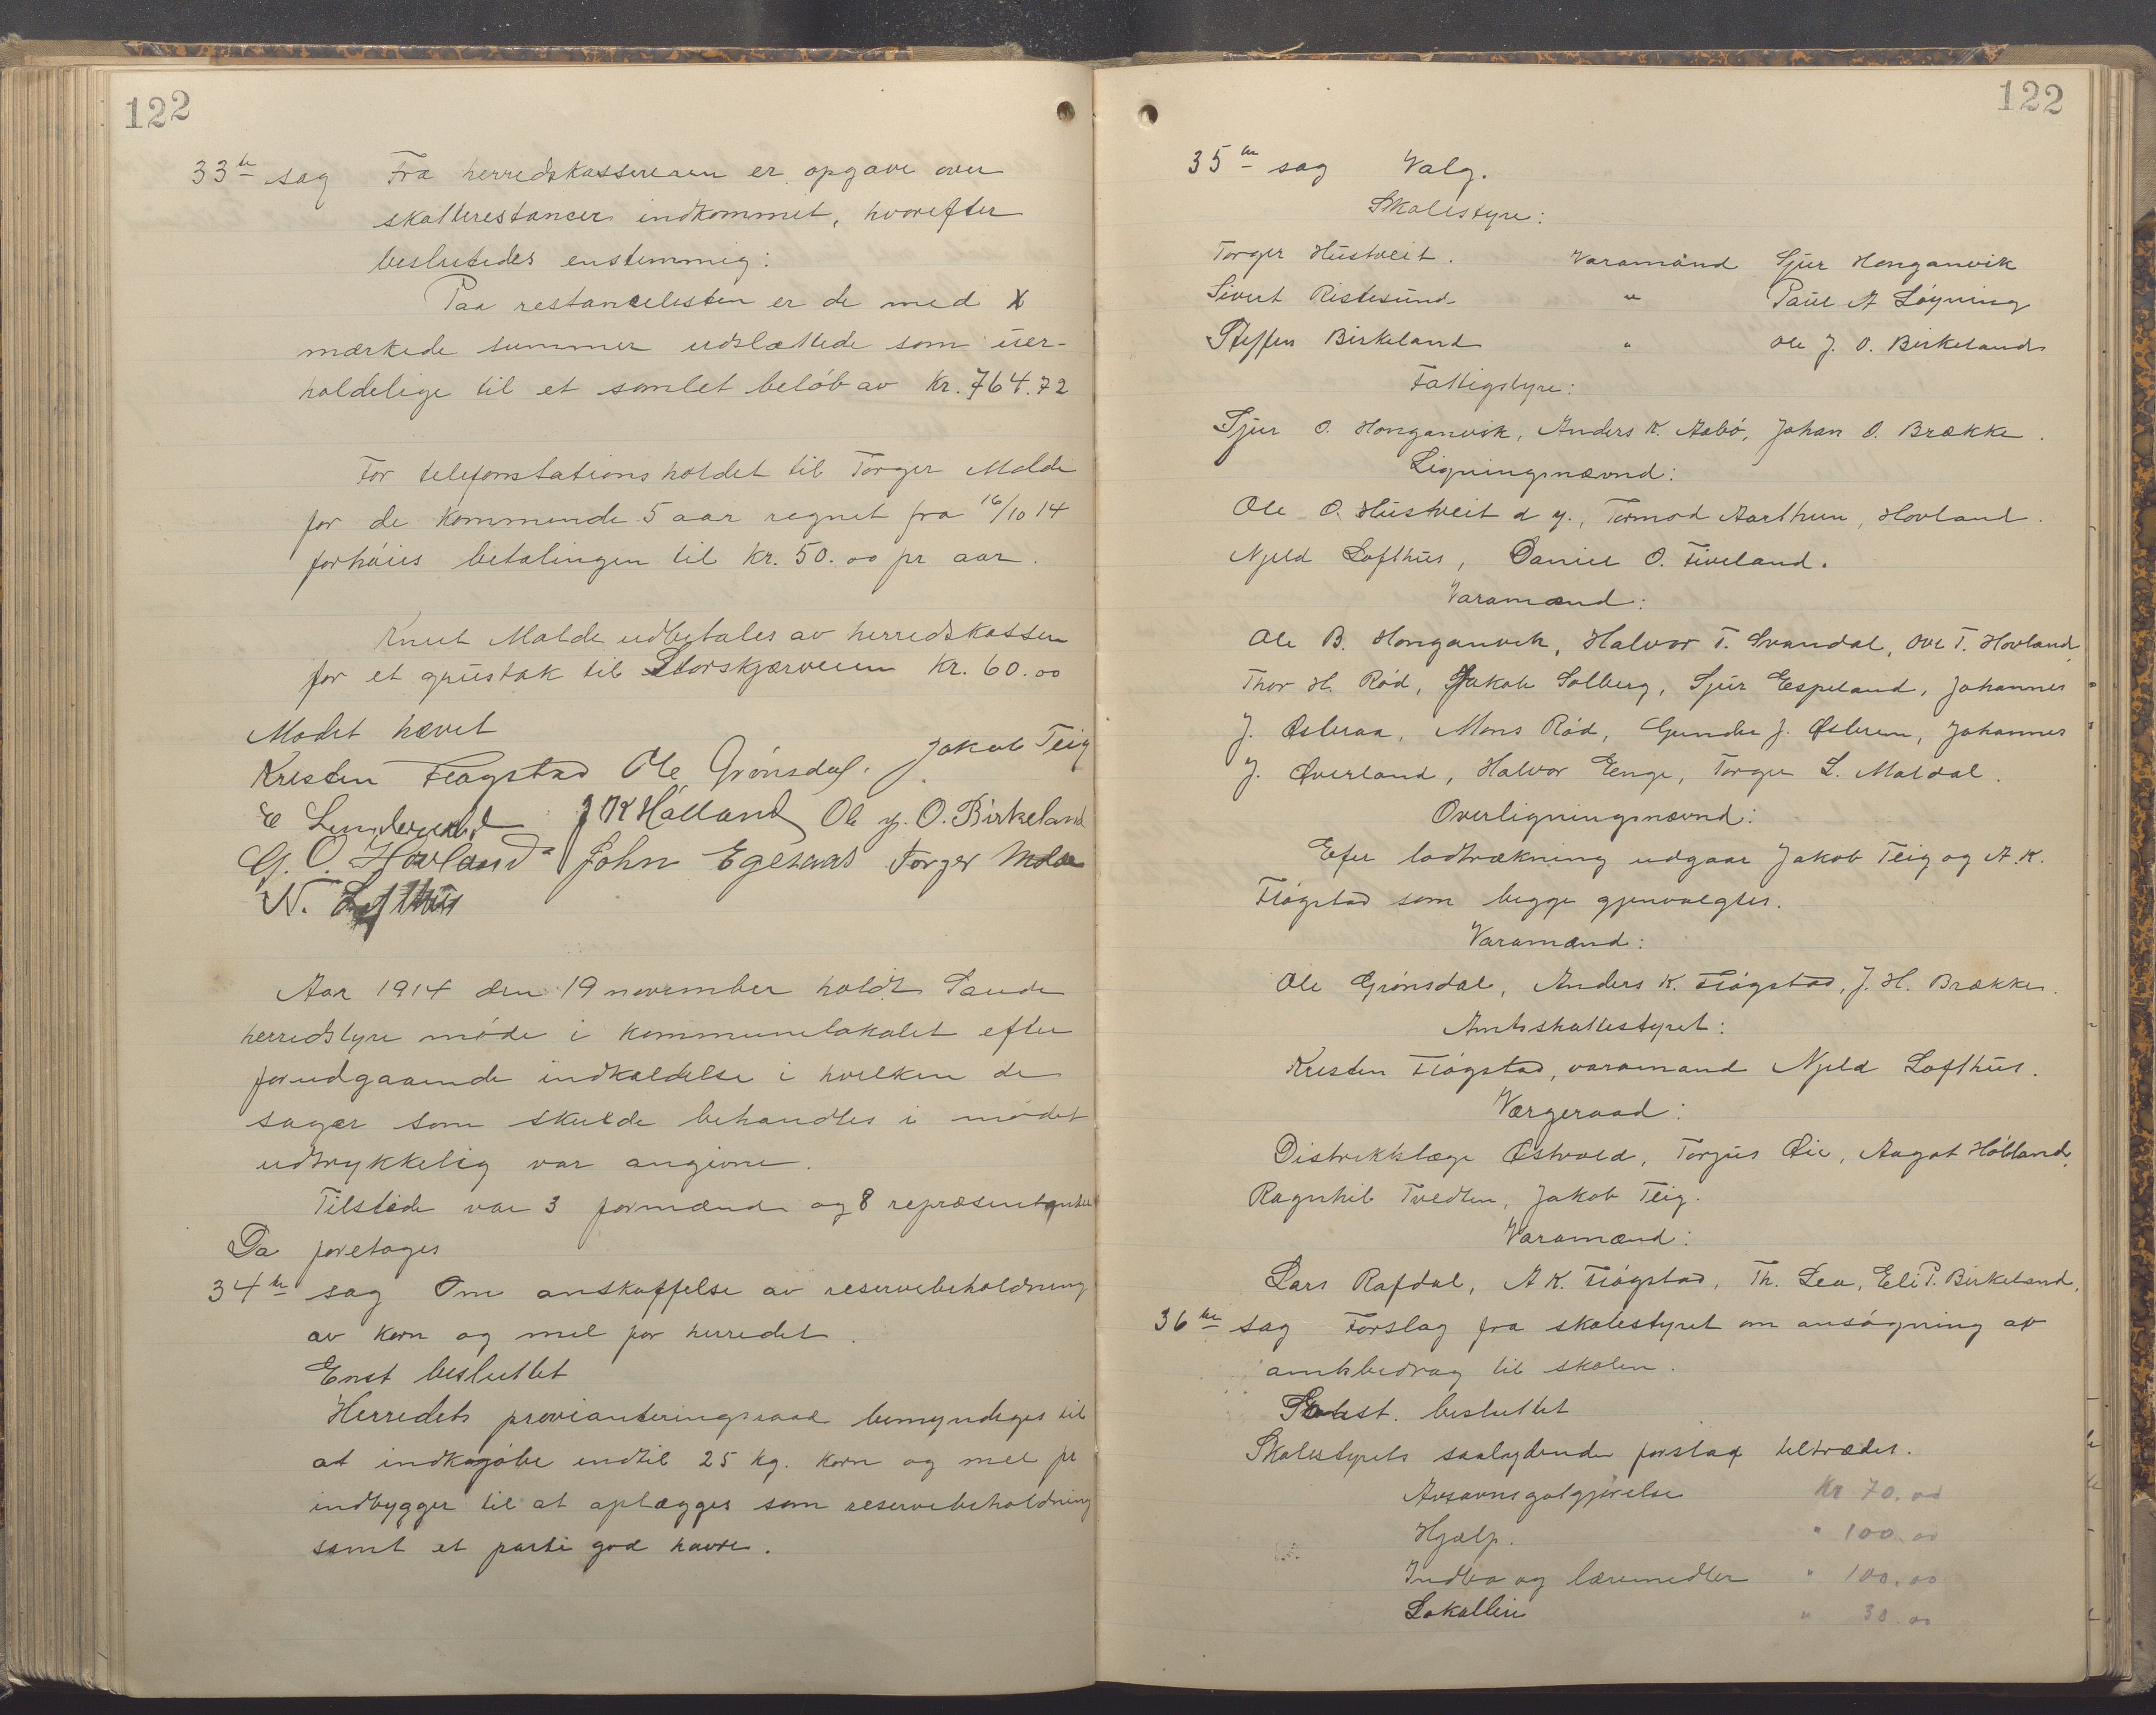 122
33te sag Fra herredskassereren er opgave over
skatterestancer indkommet, hvorefter
besluttedes enstemmig:
Paa restancelisten er de med X
mærkede summer udslættede som uer-
holdelige til et samlet beløb av Kr. 764.72
For telefonstationsholdet til Torger Malde
for de kommende 5 aar regnet fra 16/10 14
forhøies betalingen til Kr. 50.00 pr aar.
Knut Malde udbetales av herredskassen
for et grustak til Storskjærveien Kr. 60.00
Mødet hævet
Kristen Fløgstad Ole Grønsdal. Jakob Teig
E J K Hølland Ole J. O. Birkeland
G. O. Hovland John Egesaas Torger Malde
N. Lofthus
Aar 1914 den 19 november holdt Sande
herredstyre møde i kommunelokalet efter
forudgaaende indkaldelse i hvilken de
sager som skulde behandles i mødet
udtrykkelig var angivne.
Tilstede var 3 formænd og 8 repræsentanter
Da foretoges
34te sag Om anskaffelse av reservebeholdning
av korn og mel for herredet.
Enst besluttet
Herredets provianteringsraad bemyndiges til
at indkøbe indtil 25 kg. korn og mel pr
indbygger til at oplægges som reservebeholdning
samt et parti god havre.
122
35te sag Valg.
Skolestyre:
Torger Hustveit. Varamand Sjur Honganvik
Sivert Ristesund " Paul A Løyning
Steffen Birkeland " Ole J. O. Birkeland
Fattigstyre:
Sjur O. Honganvik, Anders K. Aabø, Johan O. Brække.
Ligningsnævnd:
Ole O. Hustveit d y., Tormod Aarthun, Hovland.
Njeld Lofthus, Daniel O. Tiveland.
Varamænd:
Ole B. Honganvik, Halvor T. Svandal, Ove T. Hovland,
Thor H. Rød, Jakob Solberg, Sjur Espeland, Johannes
J. Østeraa, Mons Rød, Gunder J. Østerem, Johannes
J. Øverland, Halvor Enge, Torger L. Maldal.
Overligningsnævnd:
Efter lodtrækning udgaar Jakob Teig og A. K.
Fløgstad som begge gjenvalgtes.
Varamænd:
Ole Grønsdal, Anders K. Fløgstad, J. H. Brække.
Amtsskattestyret:
Kristen Fløgstad, varamand Njeld Lofthus.
Værgeraad:
Distriktslæge Østvold, Torjus Øie, Aagot Hølland,
Ragnhil Tvedten, Jakob Teig.
Varamænd:
Lars Rafdal, A K. Fløgstad, Th. Lea, Eli P. Birkeland.
36te sag Forslag fra skolestyret om ansøgning av
amtsbidrag til skolen.
Enst. besluttet
Skolestyrets saalydende forslag tiltrædes.
Avsavnsgotgjørelse Kr 70.00
Hjælp. " 100.00
Indbo og læremidler " 100.00
Lokalleie " 30.00